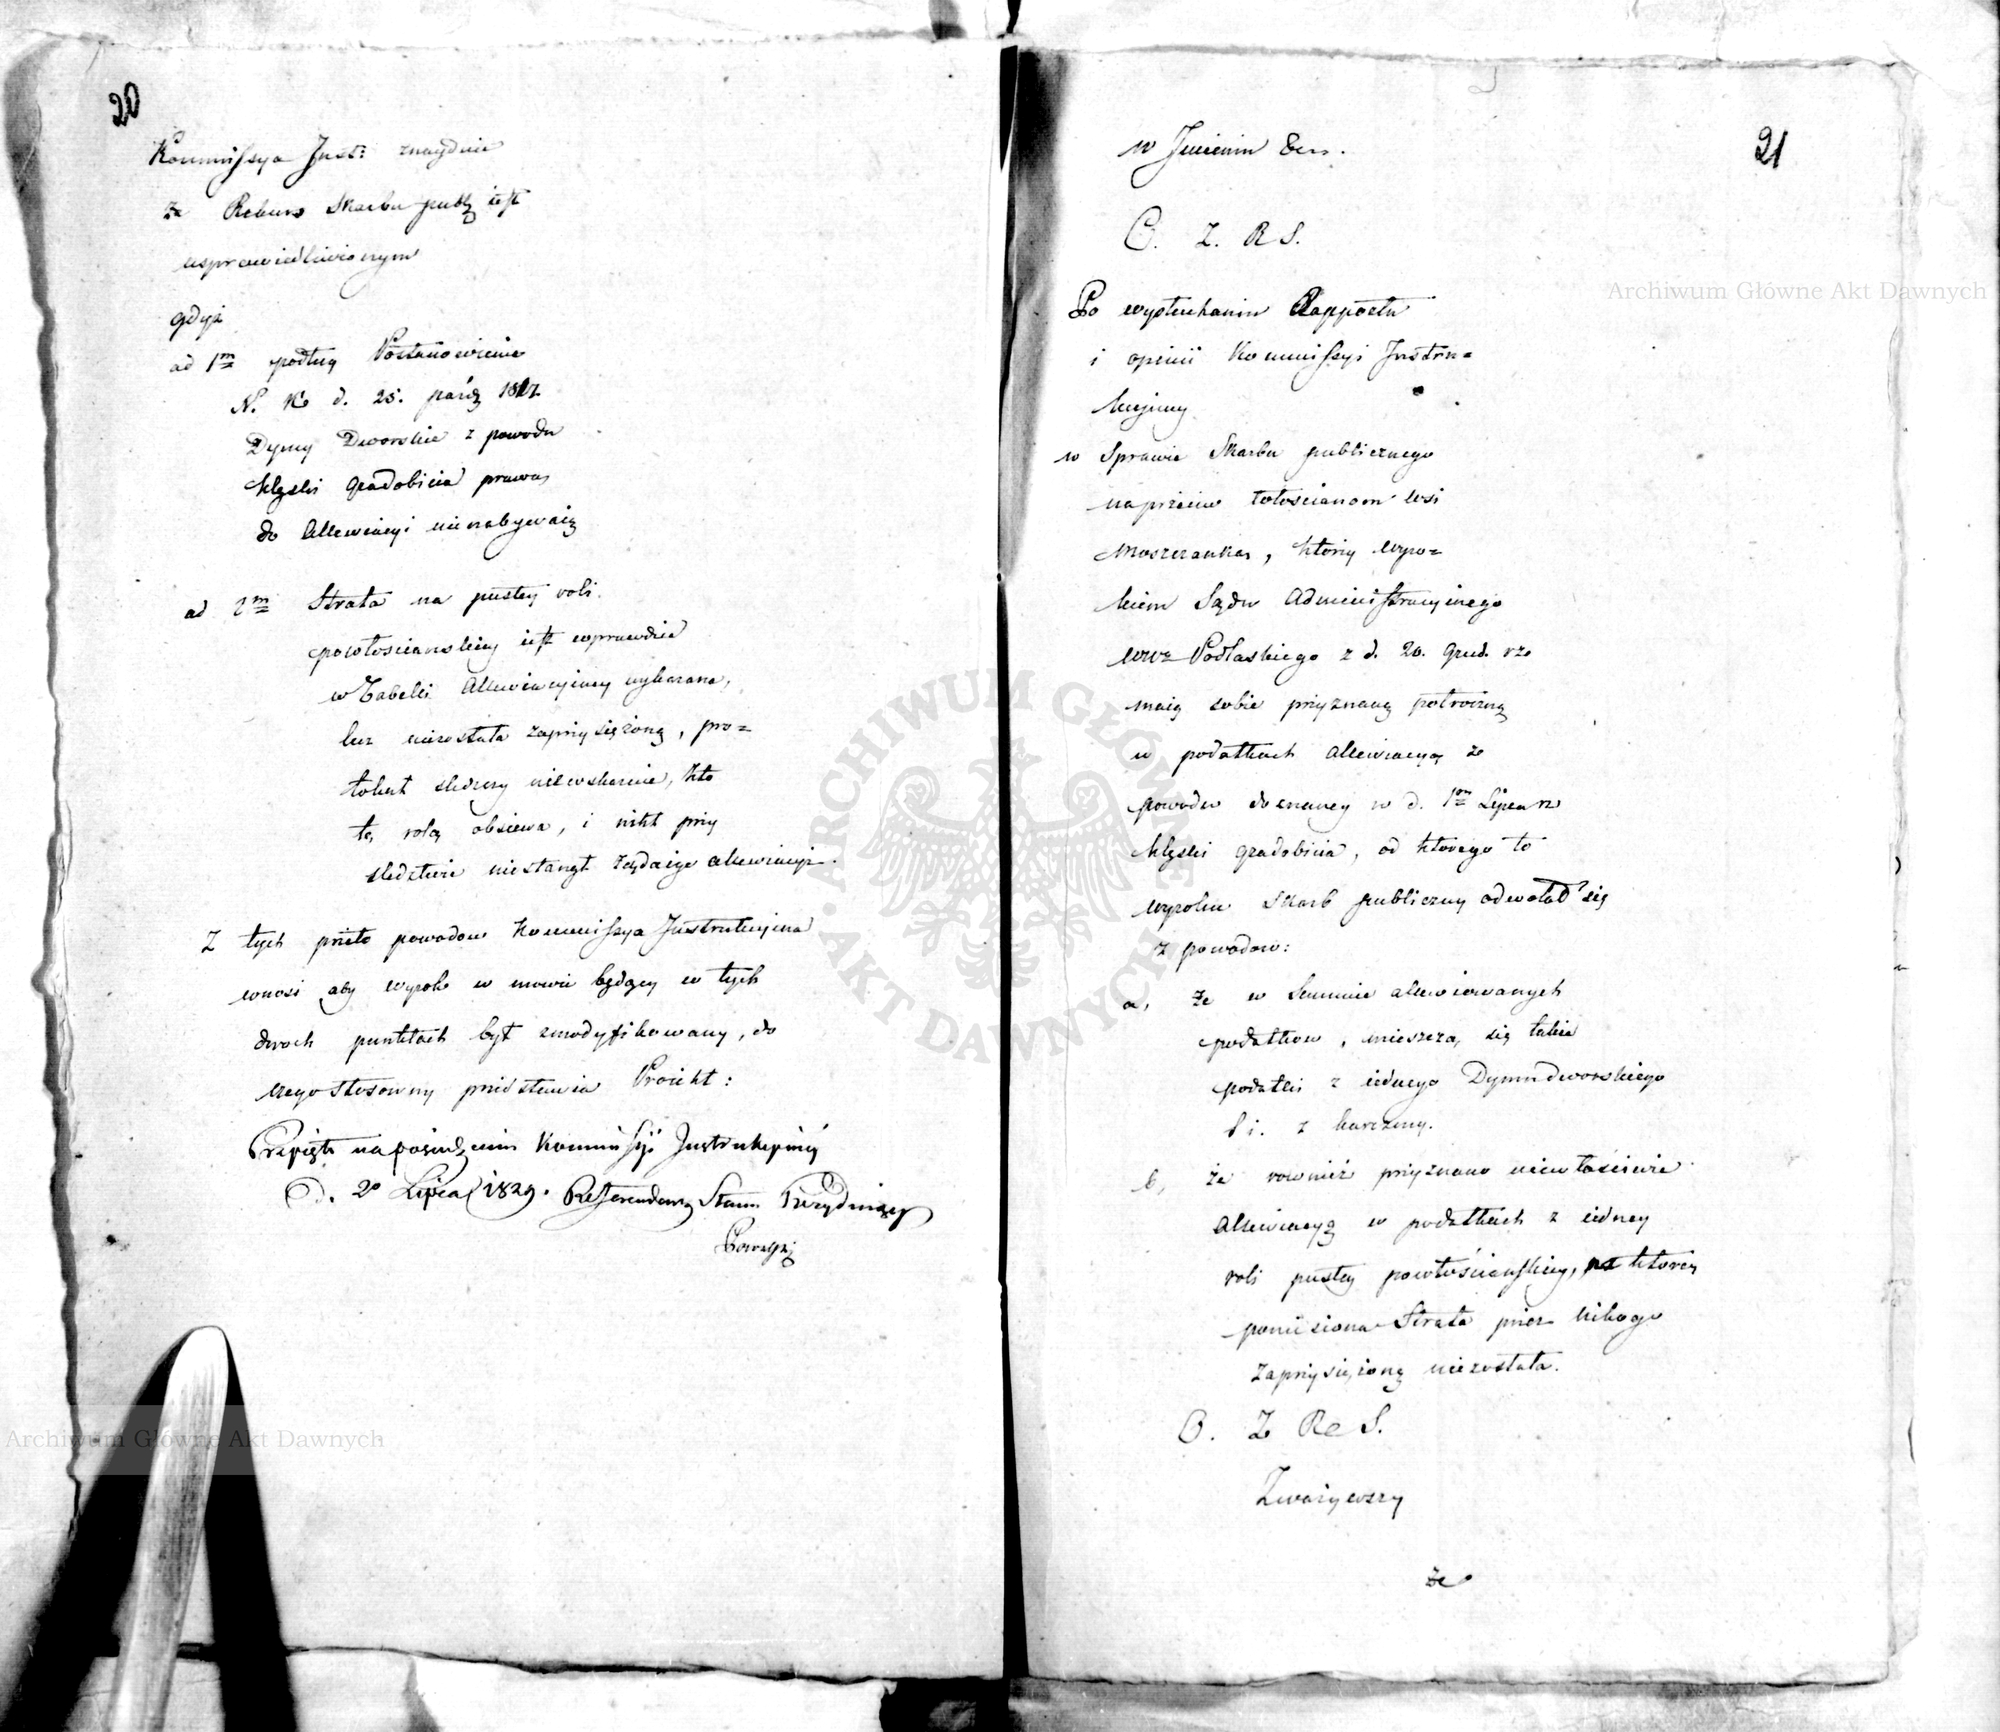 20
Kommissya Inst: znayduie
że Rekurs Skarbu publ iest
usprawiedliwionym
gdyż
ad 1m podług Postanowienia
N. K d. 25. paźdz 1817
Dymy Dworskie z powodu
klęski gradobicia prawa
do allewiacyi nienabywaią
ad 2m Strata na pustey roli
powłosciańskiey iest wprawdzie
w Tabelli Allewiacyiney wykazana,
lecz niezostała zaprzysiężoną, pro=
tokuł śledczy niewskazuie, kto
tę rolą obsiewa, i nikt przy
sledztwie niestanął żądaiąc allewiacyi.
Z tych przeto powodow Kommissya Instrukcyina
wnosi aby wyrok w mowie będący w tych
dwoch punktach był zmodyfikowany, do
czego stosowny przedstawia Proiekt:
Przyięto na posiedzeniu Kommissyi Instrukcyiney
D. 20 Lipca 1829. Referendarz Stanu Prezyduiący
21
w Imieniu &cn.
O. Z. R S.
Po wysłuchaniu Rapportu
i opinii Kommissyi Instru=
kcyiney
w Sprawie Skarbu publicznego
naprzeciw Włościanom wsi
Moszczanka, którzy wyro=
kiem Sądu Administracyinego
Wwa Podlaskiego z d. 20. Grud. rzo
maią sobie przyznaną połroczną
w podatkach allewiacyą ze
powodu doznaney w d. 1m Lipca rz
klęski gradobicia, od ktorego to
wyroku Skarb publiczny odwołał się
z powodow:
a, że w Summie allewiowanych
podatkow, mieszczą się także
podatki z iednego Dymu dworskiego
t i. z karczmy.
b, że rownież przyznano niewłaściwie
Allewiacyą w podatkach z iedney
roli pustey powłościańskiey, na ktorey
poniesiona Strata przez nikogo
zaprzysiężoną niezostała.
O. Z R S.
Zważywszy
że
Archiwum Główne Akt Dawnych
Archiwum Główne Akt Dawnych
ARCHIWUM GŁÓWNE
AKT DAWNYCH